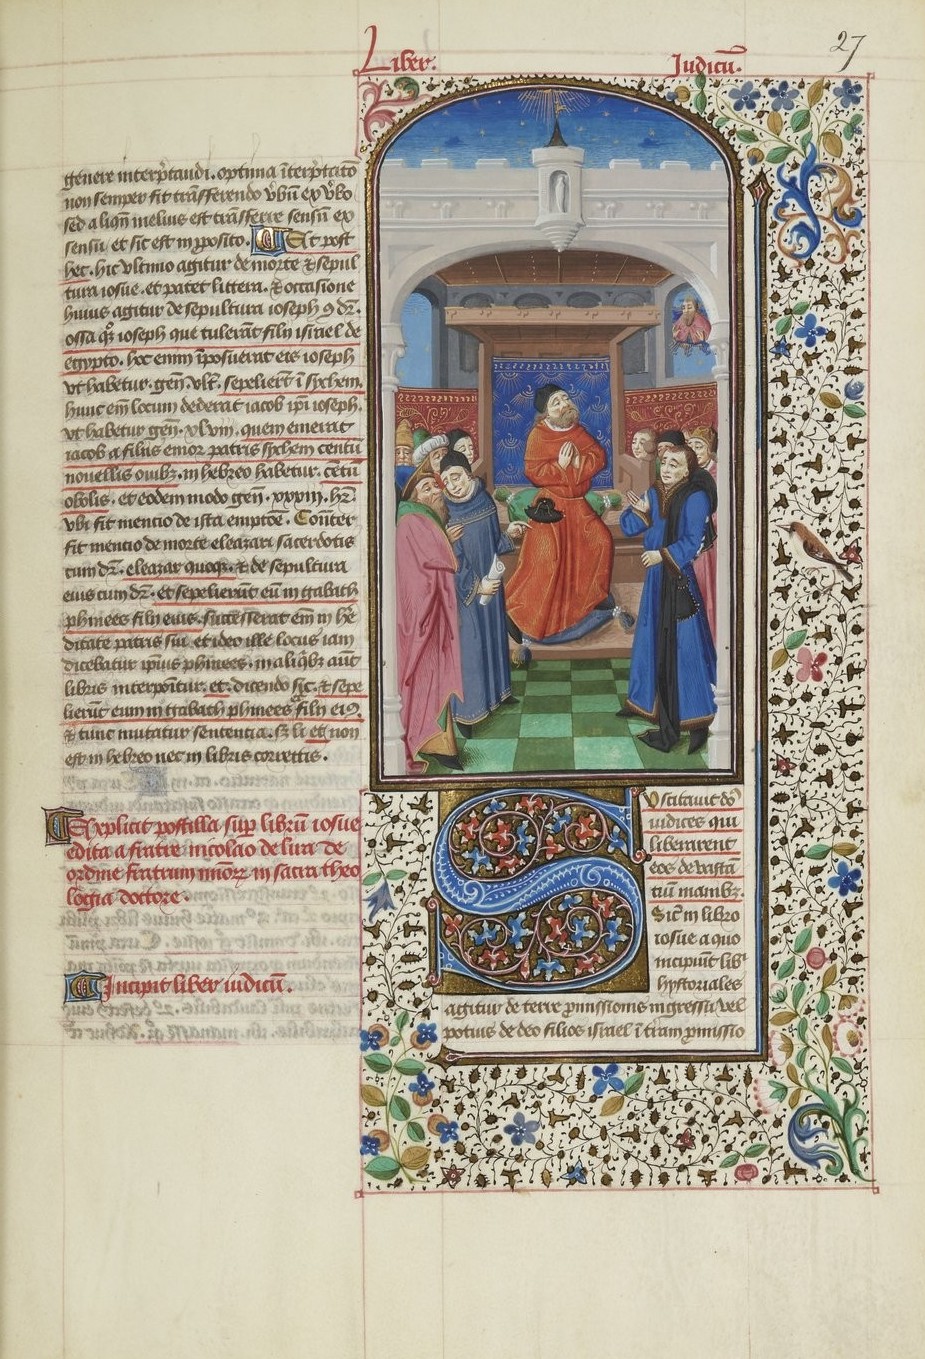 Liber. Iudicũ.
27
genere interp̃tandi. optima ĩterp̃tatio
non semper fit trãsferendo v̓bũ ex v̓bo
sed aliqñ melius est trãsferre sensũ ex
sensu. et sic est in p̱posito. Et post
hec. hic vltimo agitur de morte ⁊ sepul
tura iosue. et patet littera. ⁊ occasione
huius agitur de sepultura ioseph ꝯ dr̃.
ossa q̃ ioseph que tulerãt filij israel de
egypto. hoc enim ĩposuerat eis ioseph
vt habetur. geñ. vlt̃. sepelierũt ĩ sychem.
hunc em̃ locum dederat iacob ip̃i ioseph.
vt habetur geñ. xlviij. quem emerat
iacob a filijs emor patris sychem centũ
nouellis ouibꝫ. in hebreo habetur. cẽtũ
obolis. et eodem modo geñ. xxxiij. hr̃
vbi fit mentio de ista emptõe. Cõñter
fit mentio de morte eleazari sacerdotis
cum dr̃. eleazar quoqꝫ. ⁊ de sepultura
eius cum dr̃. et sepelierũt eũ in gabath
phinees filij eius. successerat em̃ in he
ditate patris sui. et ideo ille locus iam
dicebatur ip̃ius phinees. in aliq̃bꝫ aũt
libris interponitur. et. dicendo sic. ⁊ sepe
lierũt eum in gabath phinees ⁊ filij eiꝯ.
⁊ tunc mutatur sententia. sꝫ li et non
est in hebreo nec in libris correctis.
Explicit postilla sup̱ librũ iosue
edita a fratre nicolao de lira de
ordine fratrum minoꝝ in sacra theo
logia doctore.
Incipit liber iudicũ.
Suscitauit dñs
iudices qui
liberarent
eos de vastã
tiũ manibꝫ.
Sic̃ in libro
iosue a quo
incipiũt libri
hystoriales
agitur de terre p̱missionis ingressu vel
potius de deo filios israel ĩ terrã p̱missio